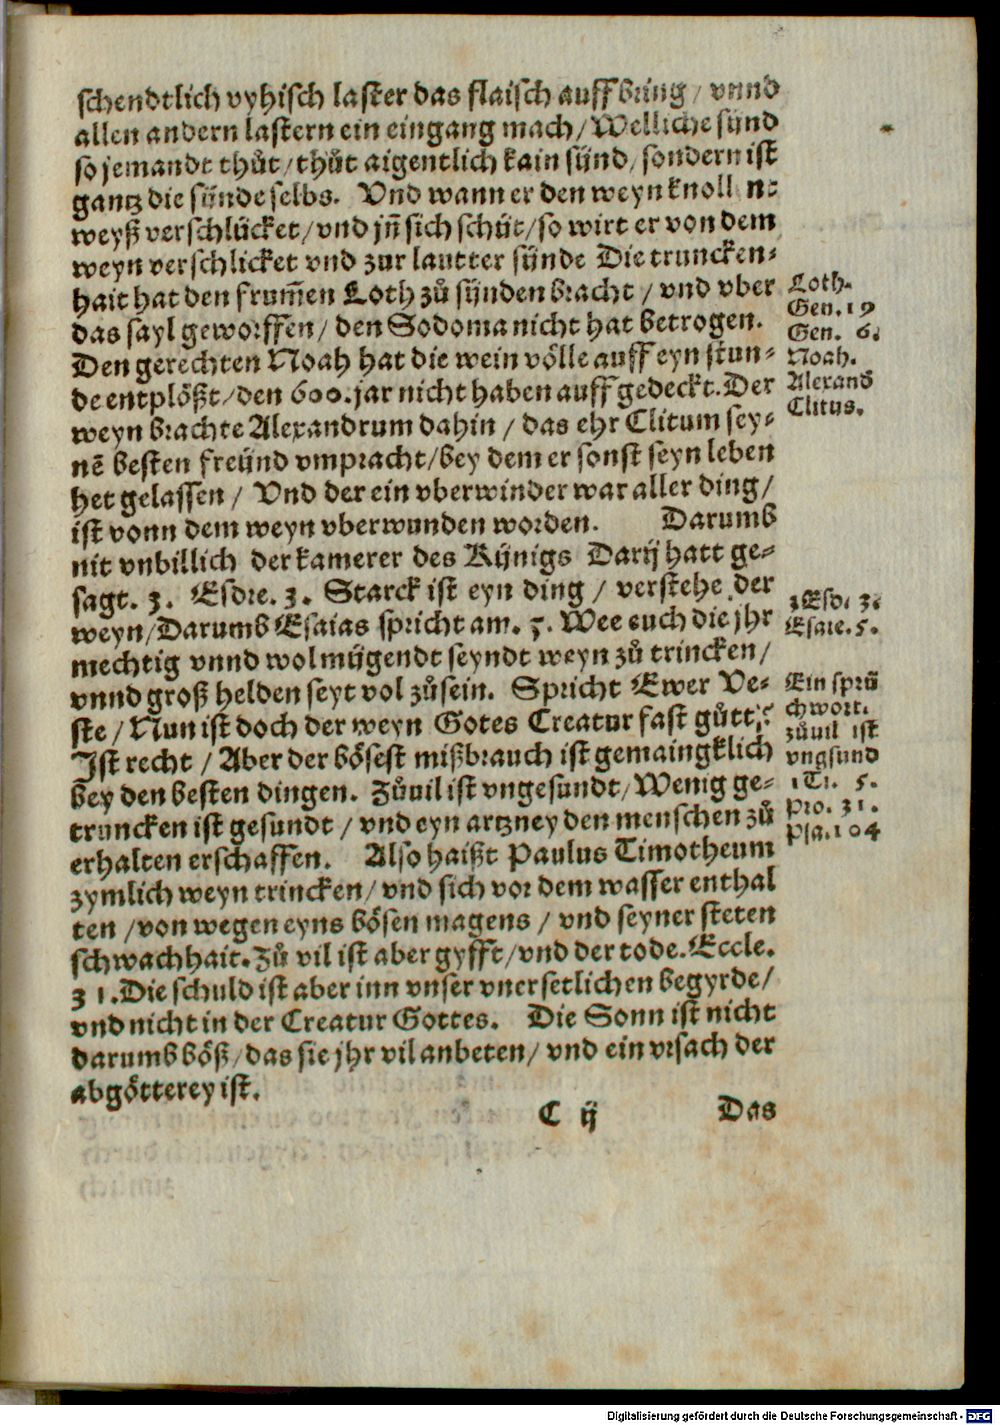 schendtlich vyhisch laster das flaisch auffbring / vnnd
allen andern lastern ein eingang mach / Welliche sünd
so jemandt thůt / thůt aigentlich kain sünd / sondern ist
gantz die sünde selbs. Vnd wann er den weyn knoll n:
weyß verschlücket / vnd jn̄ sich schüt / so wirt er von dem
weyn verschlicket vnd zur lautter sünde Die truncken-
hait hat den frum̄en Loth zů sünden bracht / vnd vber
das sayl geworffen / den Sodoma nicht hat betrogen.
Den gerechten Noah hat die wein völle auff eyn stun-
de entplößt / den 600. jar nicht haben auffgedeckt. Der
weyn brachte Alexandrum dahin / das ehr Clitum sey-
nē besten freünd vmpracht / bey dem er sonst seyn leben
het gelassen / Vnd der ein vberwinder war aller ding /
ist vonn dem weyn vberwunden worden. Darumb
nit vnbillich der kamerer des Künigs Darij hatt ge-
sagt. 3. Esdre. 3. Starck ist eyn ding / verstehe der
weyn / Darumb Esaias spricht am. 5. Wee euch die jhr
mechtig vnnd wolmügendt seyndt weyn zů trincken /
vnnd groß helden seyt vol zůsein. Spricht Ewer Ve-
ste / Nun ist doch der weyn Gotes Creatur fast gůtt?
Ist recht / Aber der bösest mißbrauch ist gemaingklich
bey den besten dingen. Zůuil ist vngesundt / Wenig ge-
truncken ist gesundt / vnd eyn artzney den menschen zů
erhalten erschaffen. Also haißt Paulus Timotheum
zymlich weyn trincken / vnd sich vor dem wasser enthal
ten / von wegen eyns bösen magens / vnd seyner steten
schwachhait. Zů vil ist aber gyfft / vnd der tode. Eccle.
31. Die schuld ist aber inn vnser vnersetlichen begyrde /
vnd nicht in der Creatur Gottes. Die Sonn ist nicht
darumb böß / das sie jhr vil anbeten / vnd ein vrsach der
abgötterey ist.
C ij Das
Loth.
Gen. 19
Gen. 6.
Noah.
Alexand
Clitus.
3 Esd. 3.
Esaie. 5.
Ein sprü
chwort.
zůuil ist
vngsund
1 Ti. 5.
Pro. 31.
Psa. 104
Digitalisierung gefördert durch die Deutsche Forschungsgemeinschaft - DFG